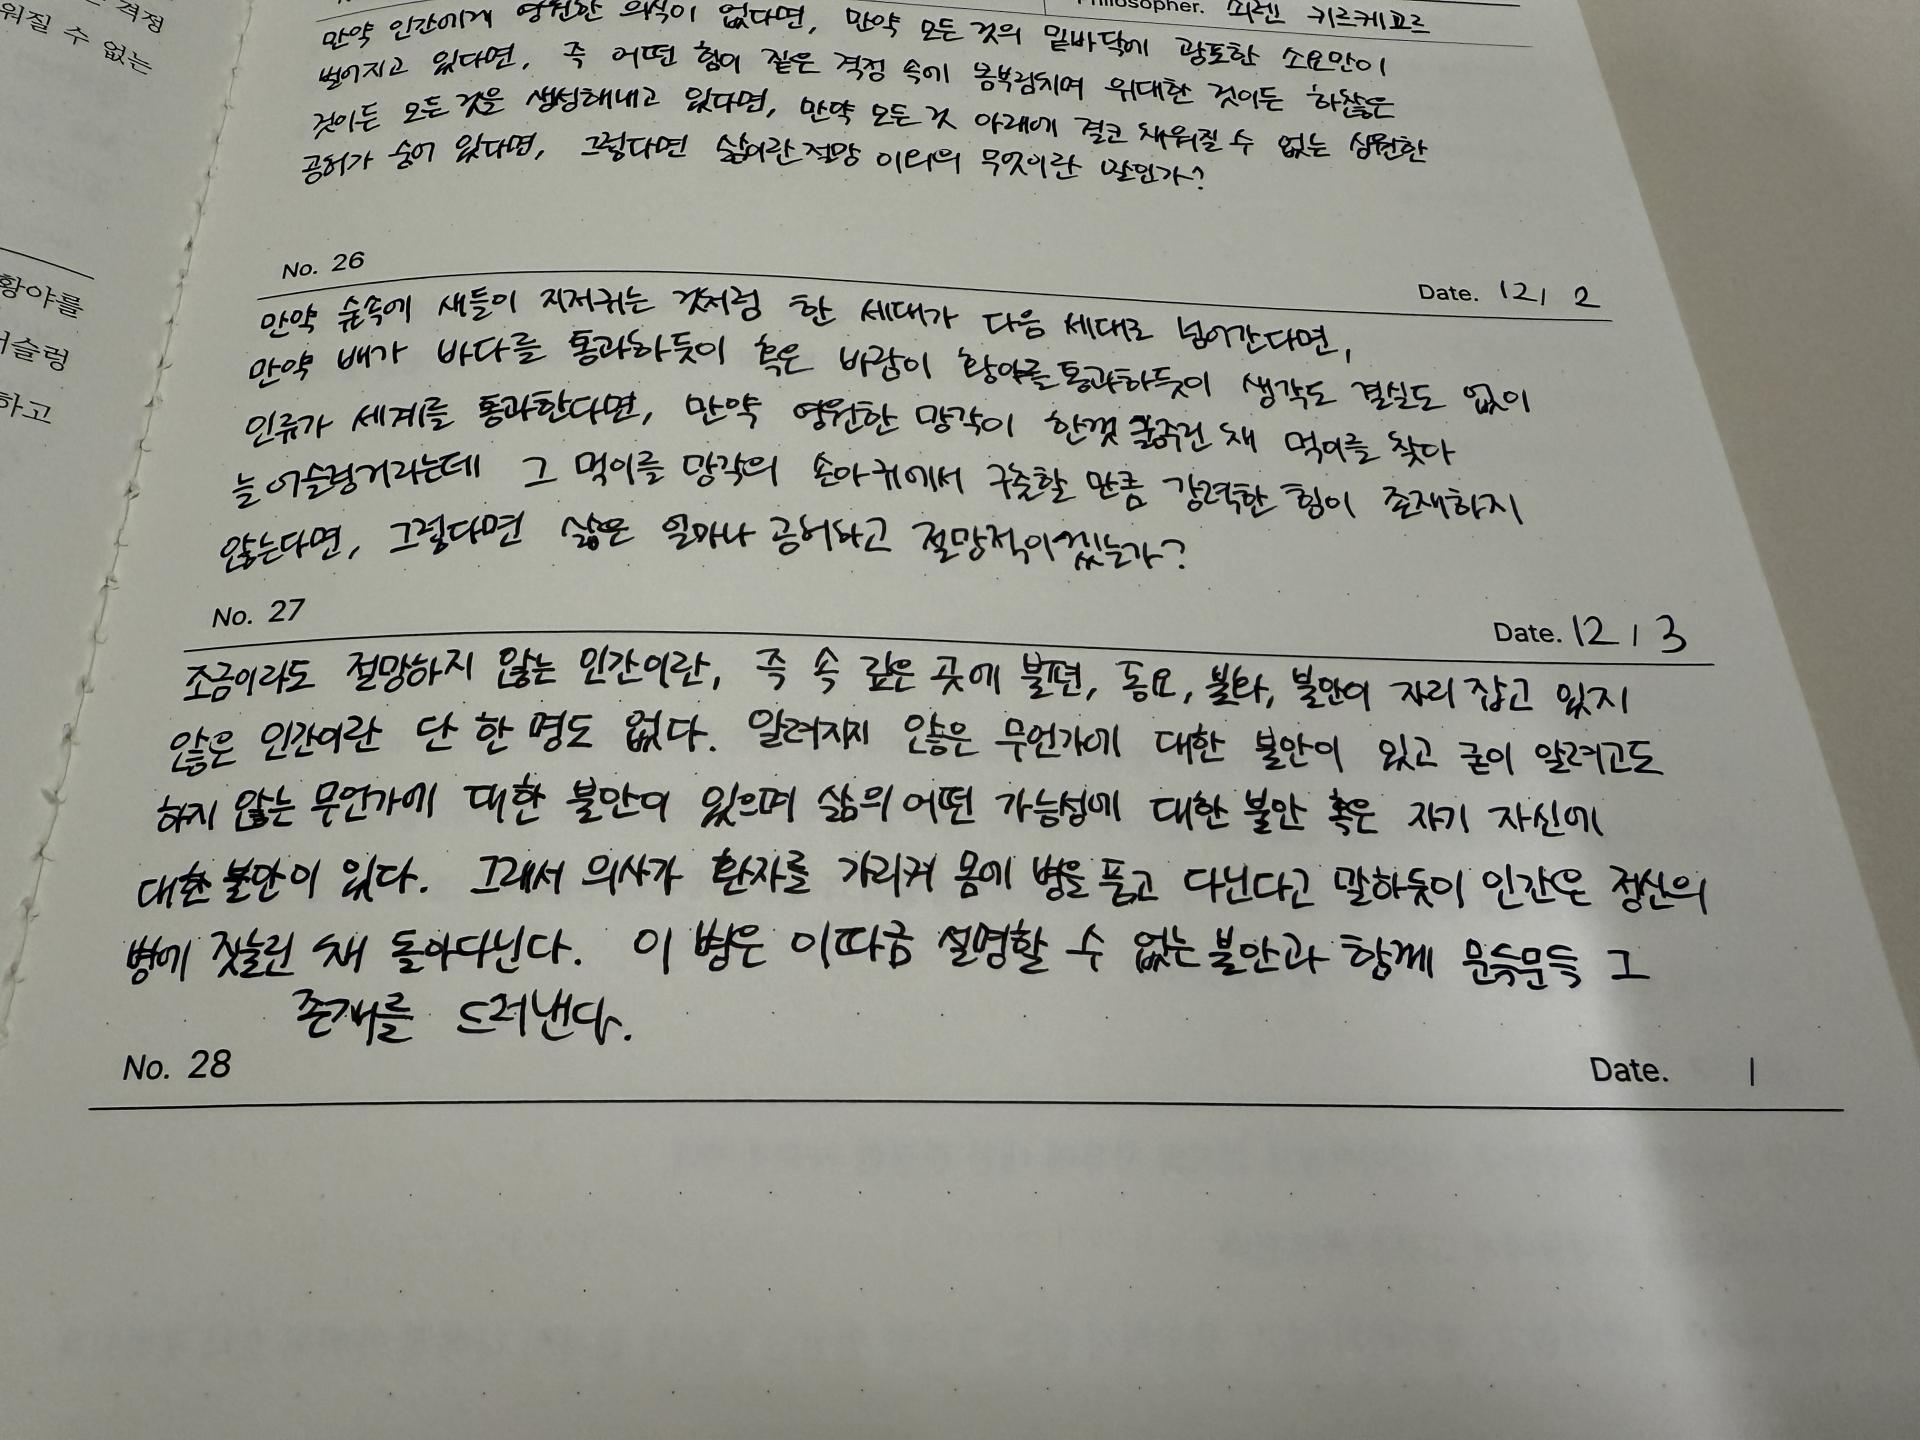 격정
워질 수 없는
황야를
어슬렁
하고
Philosopher. 쇠렌 키르케고르
만약 인간에게 영원한 의식이 없다면, 만약 모든 것의 밑바닥에 광포한 소요만이
벌어지고 있다면, 즉 어떤 힘이 짙은 격정 속에 몸부림치며 위대한 것이든 하찮은
것이든 모든 것을 생성해내고 있다면, 만약 모든 것 아래에 결코 채워질 수 없는 심원한
공허가 숨어 있다면, 그렇다면 삶이란 절망 이외의 무엇이란 말인가?
No. 26
Date. 12 / 2
만약 숲속에 새들이 지저귀는 것처럼 한 세대가 다음 세대로 넘어간다면,
만약 배가 바다를 통과하듯이 혹은 바람이 황야를 통과하듯이 생각도 결실도 없이
인류가 세계를 통과한다면, 만약 영원한 망각이 한껏 굶주린 채 먹이를 찾다
늘 어슬렁거리는데 그 먹이를 망각의 손아귀에서 구출할 만큼 강력한 힘이 존재하지
않는다면, 그렇다면 삶은 얼마나 공허하고 절망적이겠는가?
No. 27
Date. 12 / 3
조금이라도 절망하지 않는 인간이란, 즉 속 깊은 곳에 불편, 동요, 불화, 불안이 자리 잡고 있지
않은 인간이란 단 한 명도 없다. 알려지지 않은 무언가에 대한 불안이 있고 굳이 알려고도
하지 않는 무언가에 대한 불안이 있으며 삶의 어떤 가능성에 대한 불안 혹은 자기 자신에
대한 불안이 있다. 그래서 의사가 환자를 가리켜 몸에 병을 품고 다닌다고 말하듯이 인간은 정신의
병에 짓눌린 채 돌아다닌다. 이 병은 이따금 설명할 수 없는 불안과 함께 문득문득 그
존재를 드러낸다.
No. 28
Date. /